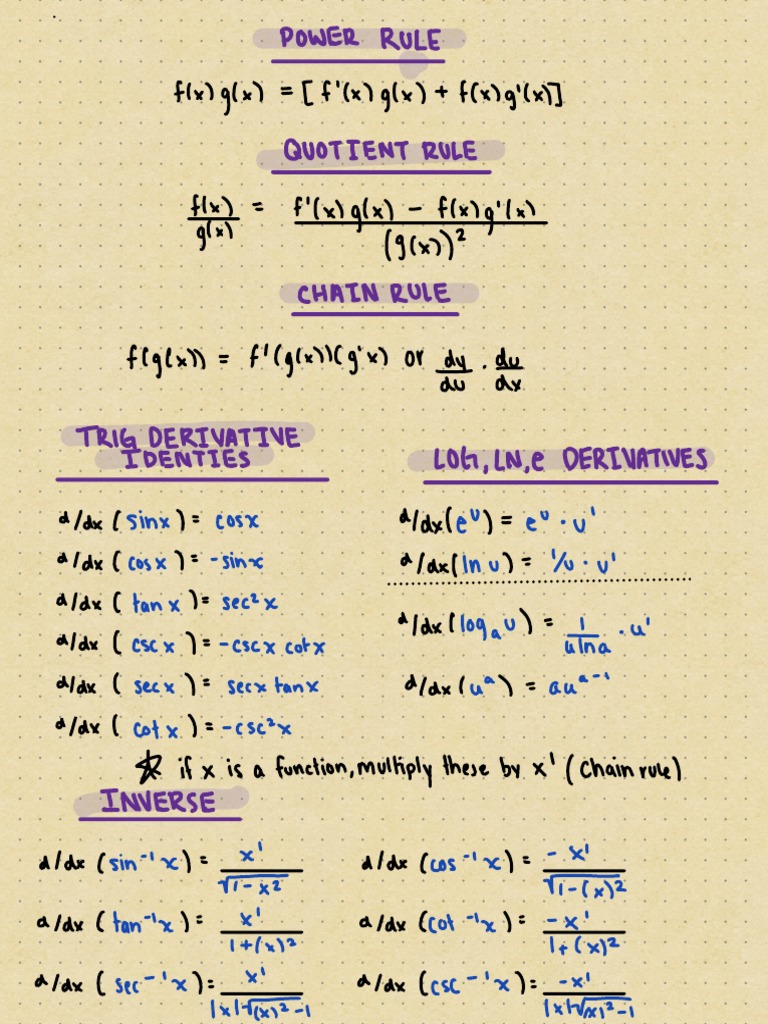 POWER RULE
f(x) g(x) = [ f'(x) g(x) + f(x) g'(x)]
QUOTIENT RULE
f(x)/g(x) = f'(x) g(x) - f(x) g'(x) / (g(x))²
CHAIN RULE
f(g(x)) = f'(g(x))(g'x) or dy/du · du/dx
TRIG DERIVATIVE
IDENTIES
d/dx (sinx) = cosx
d/dx (cosx) = -sinx
d/dx (tan x) = sec²x
d/dx (cscx) = -cscx cotx
d/dx (secx) = secx tanx
d/dx (cotx) = -csc²x
LOG, LN, e DERIVATIVES
d/dx(e^u) = e^u · u'
d/dx(ln u) = 1/u · u'
d/dx (logₐu) = 1/u ln a · u'
d/dx (u^a) = au^a-1
☆ if x is a function, multiply these by x' (Chain rule)
INVERSE
d/dx (sin⁻¹x) = x'/√1-x²
d/dx (cos⁻¹x) = -x'/√1-(x)²
d/dx (tan⁻¹x) = x'/1+(x)²
d/dx (cot⁻¹x) = -x'/1+(x)²
d/dx (sec⁻¹x) = x'/|x|√(x)²-1
d/dx (csc⁻¹x) = -x'/|x|√(x)²-1